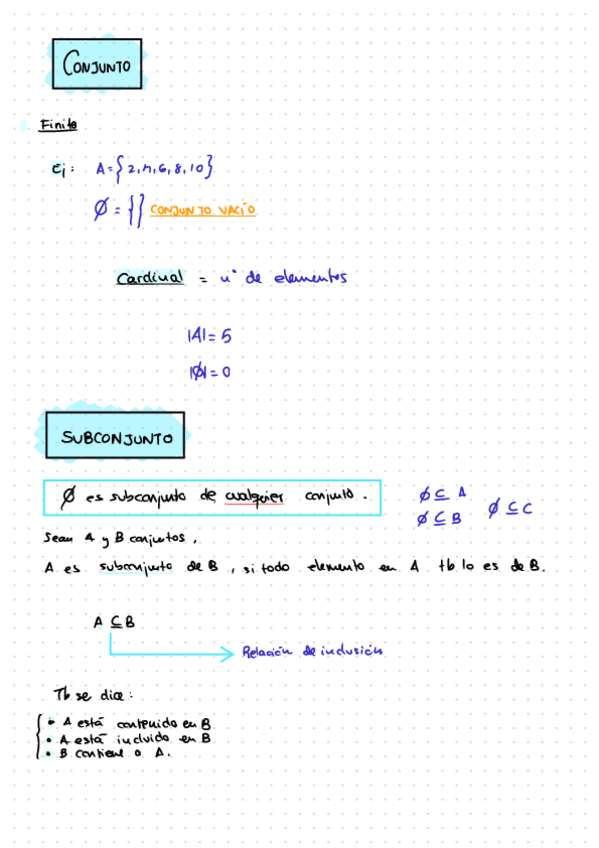 CONJUNTO
Finito
Ej: A={2,4,6,8,10}
Ø = {} CONJUNTO VACÍO
Cardinal = nº de elementos
|A|= 5
|Ø|= 0
SUBCONJUNTO
Ø es subconjunto de cualquier conjunto.
Ø ⊆ A
Ø ⊆ B
Ø ⊆ C
Sean A y B conjuntos,
A es subconjunto de B, si todo elemento en A tb lo es de B.
A ⊆ B
Relación de inclusión
Tb se dice:
• A está contenido en B
• A está incluido en B
• B contiene a A.